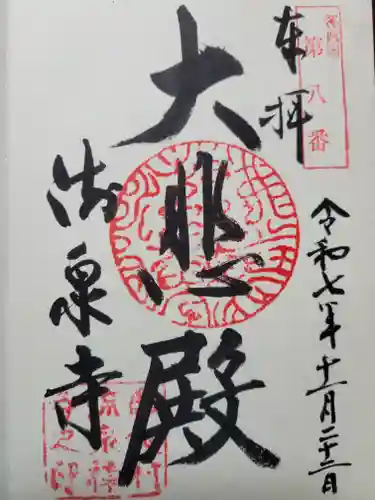 奉拝
第八番
令和七年十二月二十二日
大悲殿
御泉寺